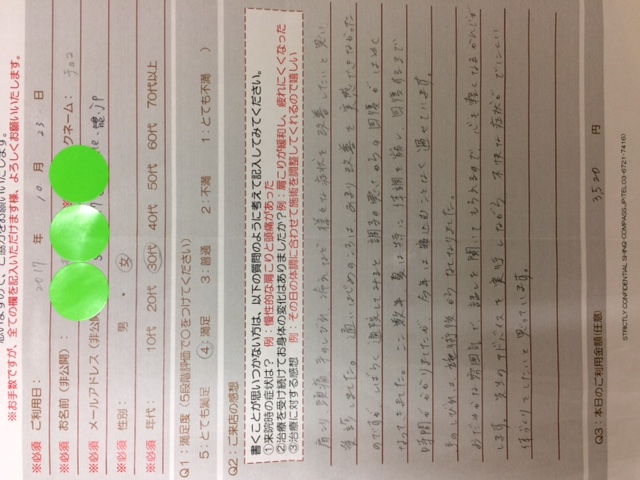 ※お手数ですが、全ての欄を記入いただけます様、よろしくお願いいたします。
※必須 ご利用日： 2017 年 10 月 23 日
※必須 お名前（非公開）： クネーム： チョコ
※必須 メールアドレス（非公
※必須 性別： 男 ・ 女
※必須 年代： 10代 20代 30代 40代 50代 60代 70代以上
Q1：満足度（5段階評価で〇をつけてください）
5：とても満足 4：満足 3：普通 2：不満 1：とても不満 ）
Q2：ご来店の感想
書くことが思いつかない方は、以下の質問のように考えて記入してみてください。
①来院時の症状は？ 例：慢性的な肩こりと頭痛があった
②治療を受け続けてお身体の変化はありましたか？例：肩こりが緩和し、疲れにくくなった
③治療に対する感想 例：その日の体調に合わせて施術を調整してくれるので嬉しい
肩こり、頭痛、手のしびれ、冷えなど 様々な症状を改善したいと思い
受診しました。通いはじめのころは あまり改善を実感できなかった
のですが、しばらく通院してみると 調子の悪さからの回復がはやく
なってきました。ここ数年、夏は特に体調を崩し、回復するまで
時間がかかりましたが、今年は寝込むことなく過せています。
手のしびれは、施術後からなくなりました。
おだやかな雰囲気で、話しを聞いてもらえるので、心も軽くなるかんじが
します。先生のアドバイスを実行しながら、不快な症状がでにくい
体づくりをしたいと思っています。
Q3：本日のご利用金額(任意) 3,520 円
STRICTLY CONFIDENTIAL SHINQ-COMPASS.JP(TEL03-6721-7416)